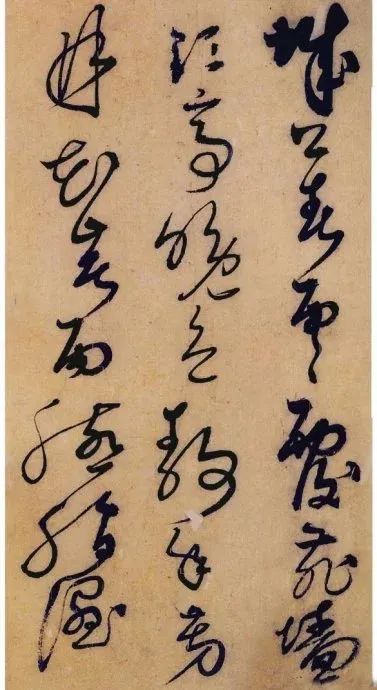 城上春雲覆苑墻
江亭晚色靜年芳
林花著雨臙脂濕